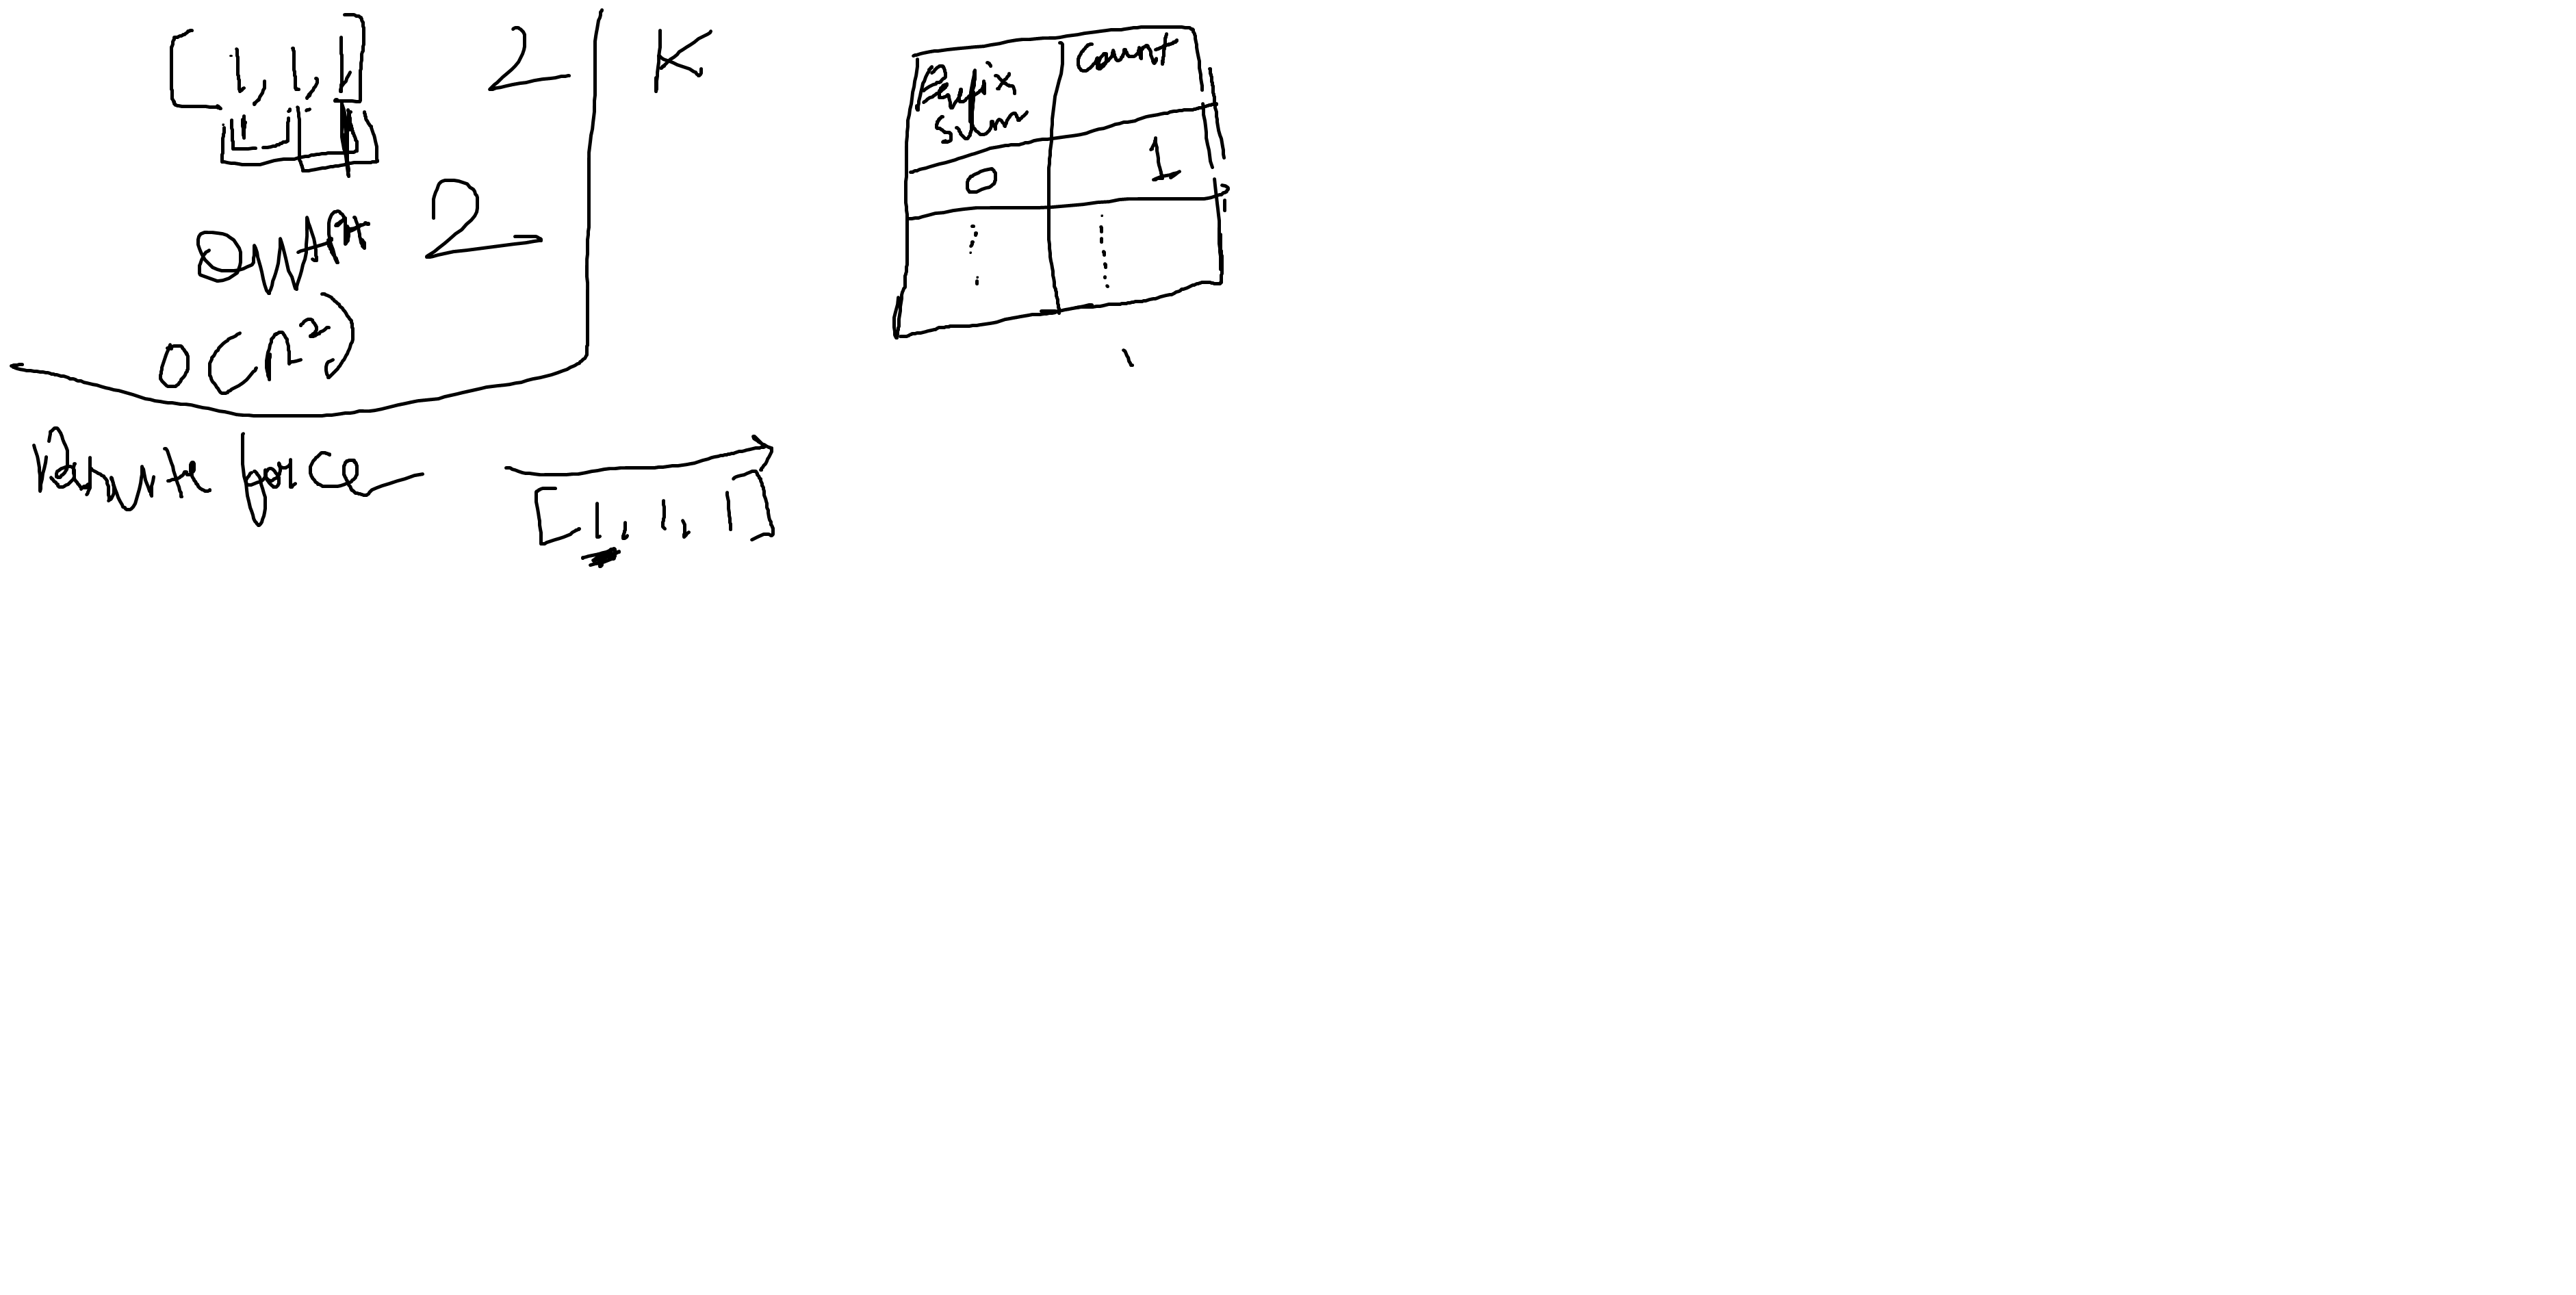 [1, 1, 1] 2 K
output 2
O(n²)
Brute force
[1, 1, 1]
Prefix sum Count
0 1